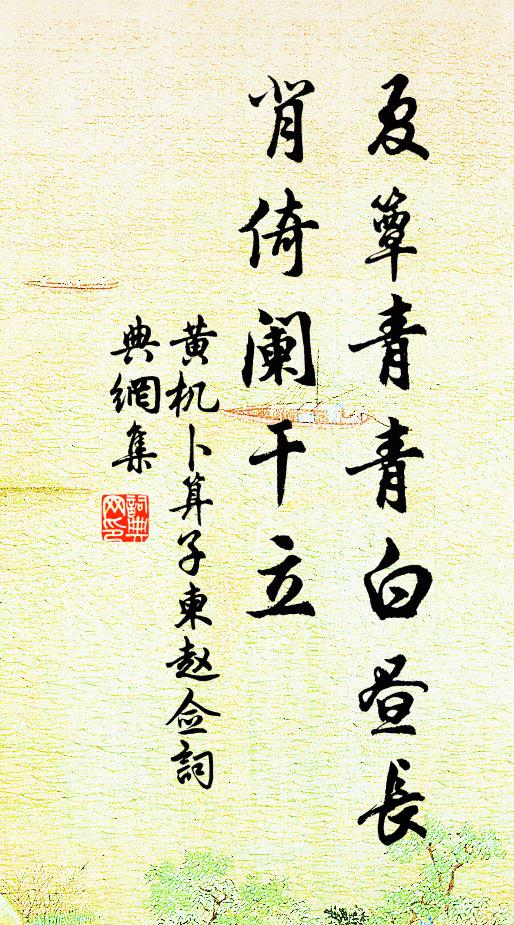 夏簟青青白昼長
肯倚阑干立
黄机卜算子東赵佥詞
典網集
詞典网印